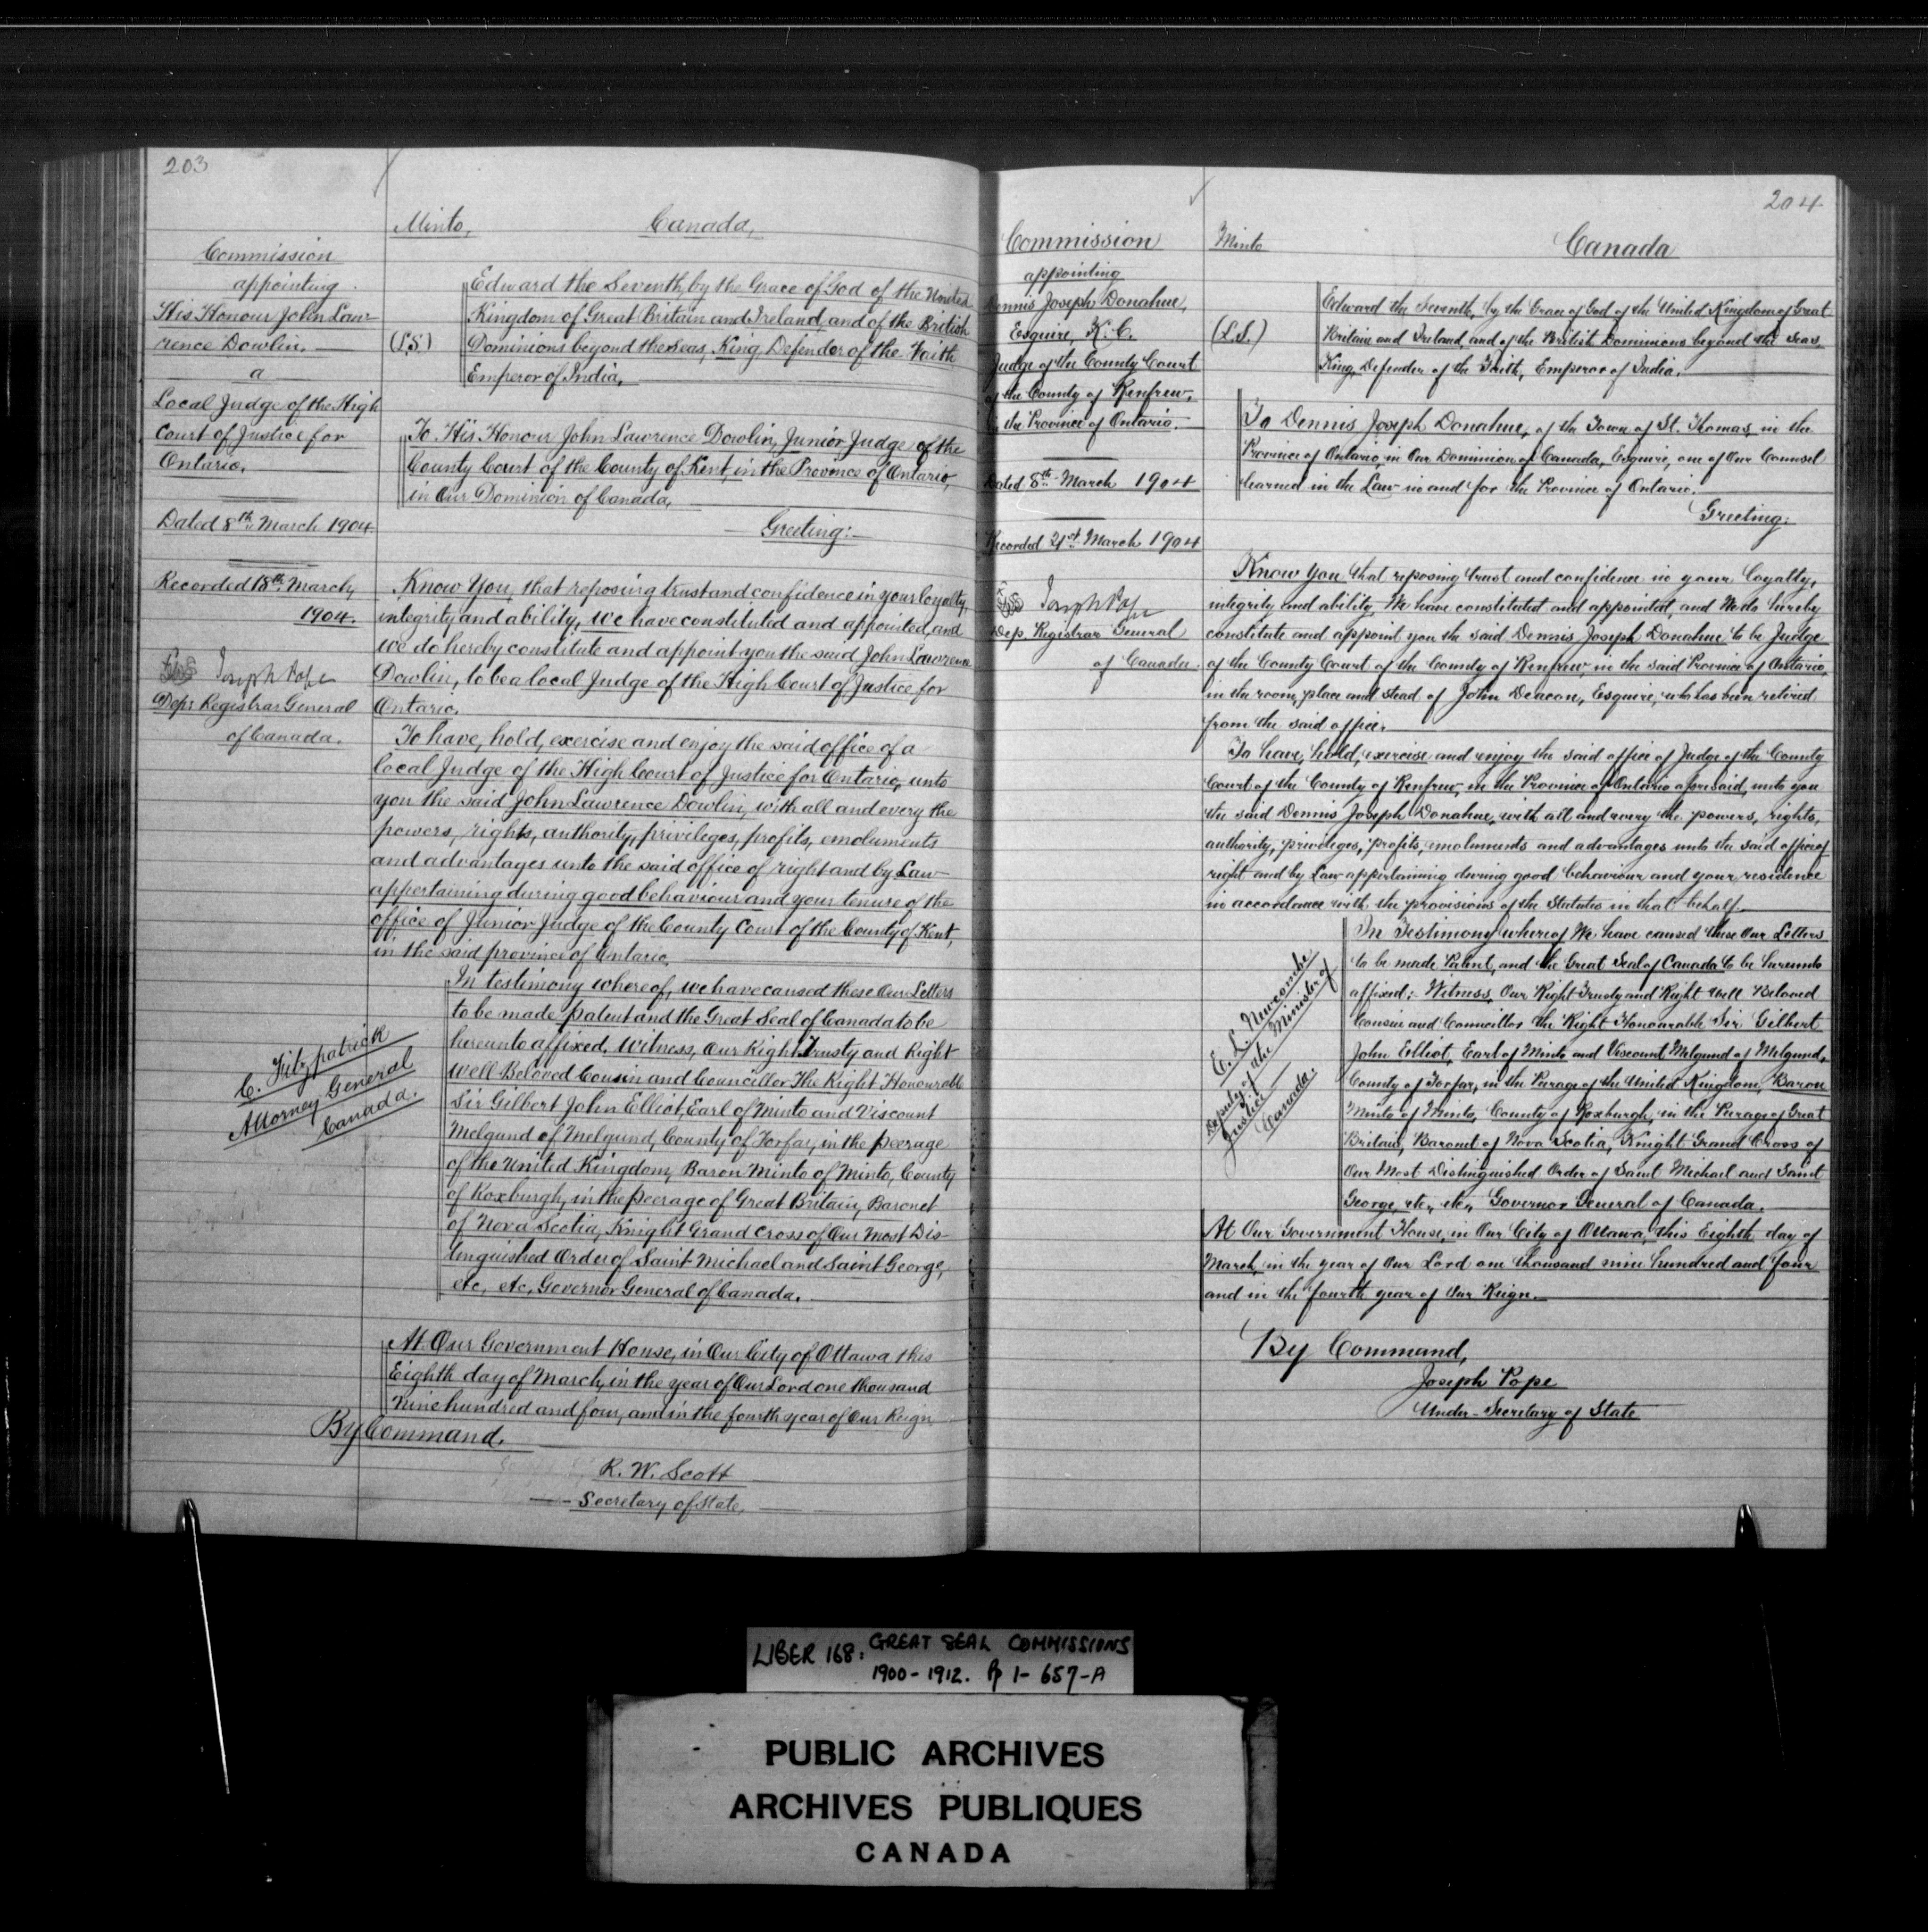 203
Commission
appointing
His Honour John Law-
rence Dowlin,
a
Local Judge of the High
Court of Justice for
Ontario.
Dated 8th March 1904
Recorded 18th March,
1904.
Joseph Pope
Dep: Registrar General
of Canada.
C. Fitzpatrick
Attorney General
Canada.
Minto, Canada,
(L.S.)
Edward the Seventh, by the Grace of God of the United
Kingdom of Great Britain and Ireland, and of the British
Dominions beyond the Seas, King, Defender of the Faith
Emperor of India,
To His Honour John Lawrence Dowlin, Junior Judge of the
County Court of the County of Kent, in the Province of Ontario,
in Our Dominion of Canada,
Greeting:-
Know You, that reposing trust and confidence in your loyalty,
integrity and ability, we have constituted and appointed, and
we do hereby constitute and appoint you the said John Lawrence
Dowlin, to be a local Judge of the High Court of Justice for
Ontario.
To have, hold, exercise and enjoy the said office of a
local Judge of the High Court of Justice for Ontario, unto
you the said John Lawrence Dowlin, with all and every the
powers, rights, authority, privileges, profits, emoluments
and advantages unto the said office of right and by Law
appertaining during good behaviour and your tenure of the
office of Junior Judge of the County Court of the County of Kent,
in the said province of Ontario.
In testimony whereof, we have caused these Our Letters
to be made patent and the Great Seal of Canada to be
hereunto affixed. Witness, Our Right Trusty and Right
Well Beloved Cousin and Councillor The Right Honourable
Sir Gilbert John Elliot, Earl of Minto and Viscount
Melgund of Melgund, County of Forfar, in the peerage
of the United Kingdom, Baron Minto of Minto, County
of Roxburgh, in the peerage of Great Britain, Baronet
of Nova Scotia, Knight Grand Cross of Our Most Dis-
tinguished Order of Saint Michael and Saint George,
etc, etc, Governor General of Canada.
At Our Government House, in Our City of Ottawa this
Eighth day of March, in the year of Our Lord one thousand
Nine hundred and four, and in the fourth year of Our Reign
By Command.
R. W. Scott
Secretary of State,
204
Commission
appointing
Dennis Joseph Donahue,
Esquire, K.C.
Judge of the County Court
of the County of Renfrew,
in the Province of Ontario.
Dated 8th March 1904
Recorded 21st March 1904
Joseph Pope
Dep. Registrar General
of Canada.
E. L. Newcombe
Deputy of the Minister of
Justice
Canada.
Minto Canada
(L.S.)
Edward the Seventh, by the Grace of God of the United Kingdom of Great
Britain and Ireland, and of the British Dominions beyond the Seas,
King, Defender of the Faith, Emperor of India.
To Dennis Joseph Donahue, of the Town of St. Thomas, in the
Province of Ontario, in Our Dominion of Canada, Esquire, one of Our Counsel
learned in the Law in and for the Province of Ontario.
Greeting:
Know You that reposing trust and confidence in your loyalty,
integrity and ability, We have constituted and appointed, and We do hereby
constitute and appoint you the said Dennis Joseph Donahue to be Judge
of the County Court of the County of Renfrew, in the said Province of Ontario,
in the room, place and stead of John Deacon, Esquire, who has been retired
from the said office.
To have, hold, exercise and enjoy the said office of Judge of the County
Court of the County of Renfrew, in the Province of Ontario aforesaid, unto you
the said Dennis Joseph Donahue, with all and every the powers, rights,
authority, privileges, profits, emoluments and advantages unto the said office of
right and by Law appertaining during good behaviour and your residence
in accordance with the provisions of the Statutes in that behalf.
In Testimony whereof We have caused these Our Letters
to be made Patent, and the Great Seal of Canada to be hereunto
affixed:- Witness, Our Right Trusty and Right Well Beloved
Cousin and Councillor the Right Honourable Sir Gilbert
John Elliot, Earl of Minto and Viscount Melgund of Melgund,
County of Forfar, in the Peerage of the United Kingdom, Baron
Minto of Minto, County of Roxburgh, in the Peerage of Great
Britain, Baronet of Nova Scotia, Knight Grand Cross of
Our Most Distinguished Order of Saint Michael and Saint
George, etc, etc, Governor General of Canada.
At Our Government House, in Our City of Ottawa, this Eighth day of
March, in the year of Our Lord one thousand nine hundred and four
and in the fourth year of Our Reign.
By Command,
Joseph Pope
Under-Secretary of State
LIBER 168: GREAT SEAL COMMISSIONS
1900-1912. Pp 1-657-A
PUBLIC ARCHIVES
ARCHIVES PUBLIQUES
CANADA